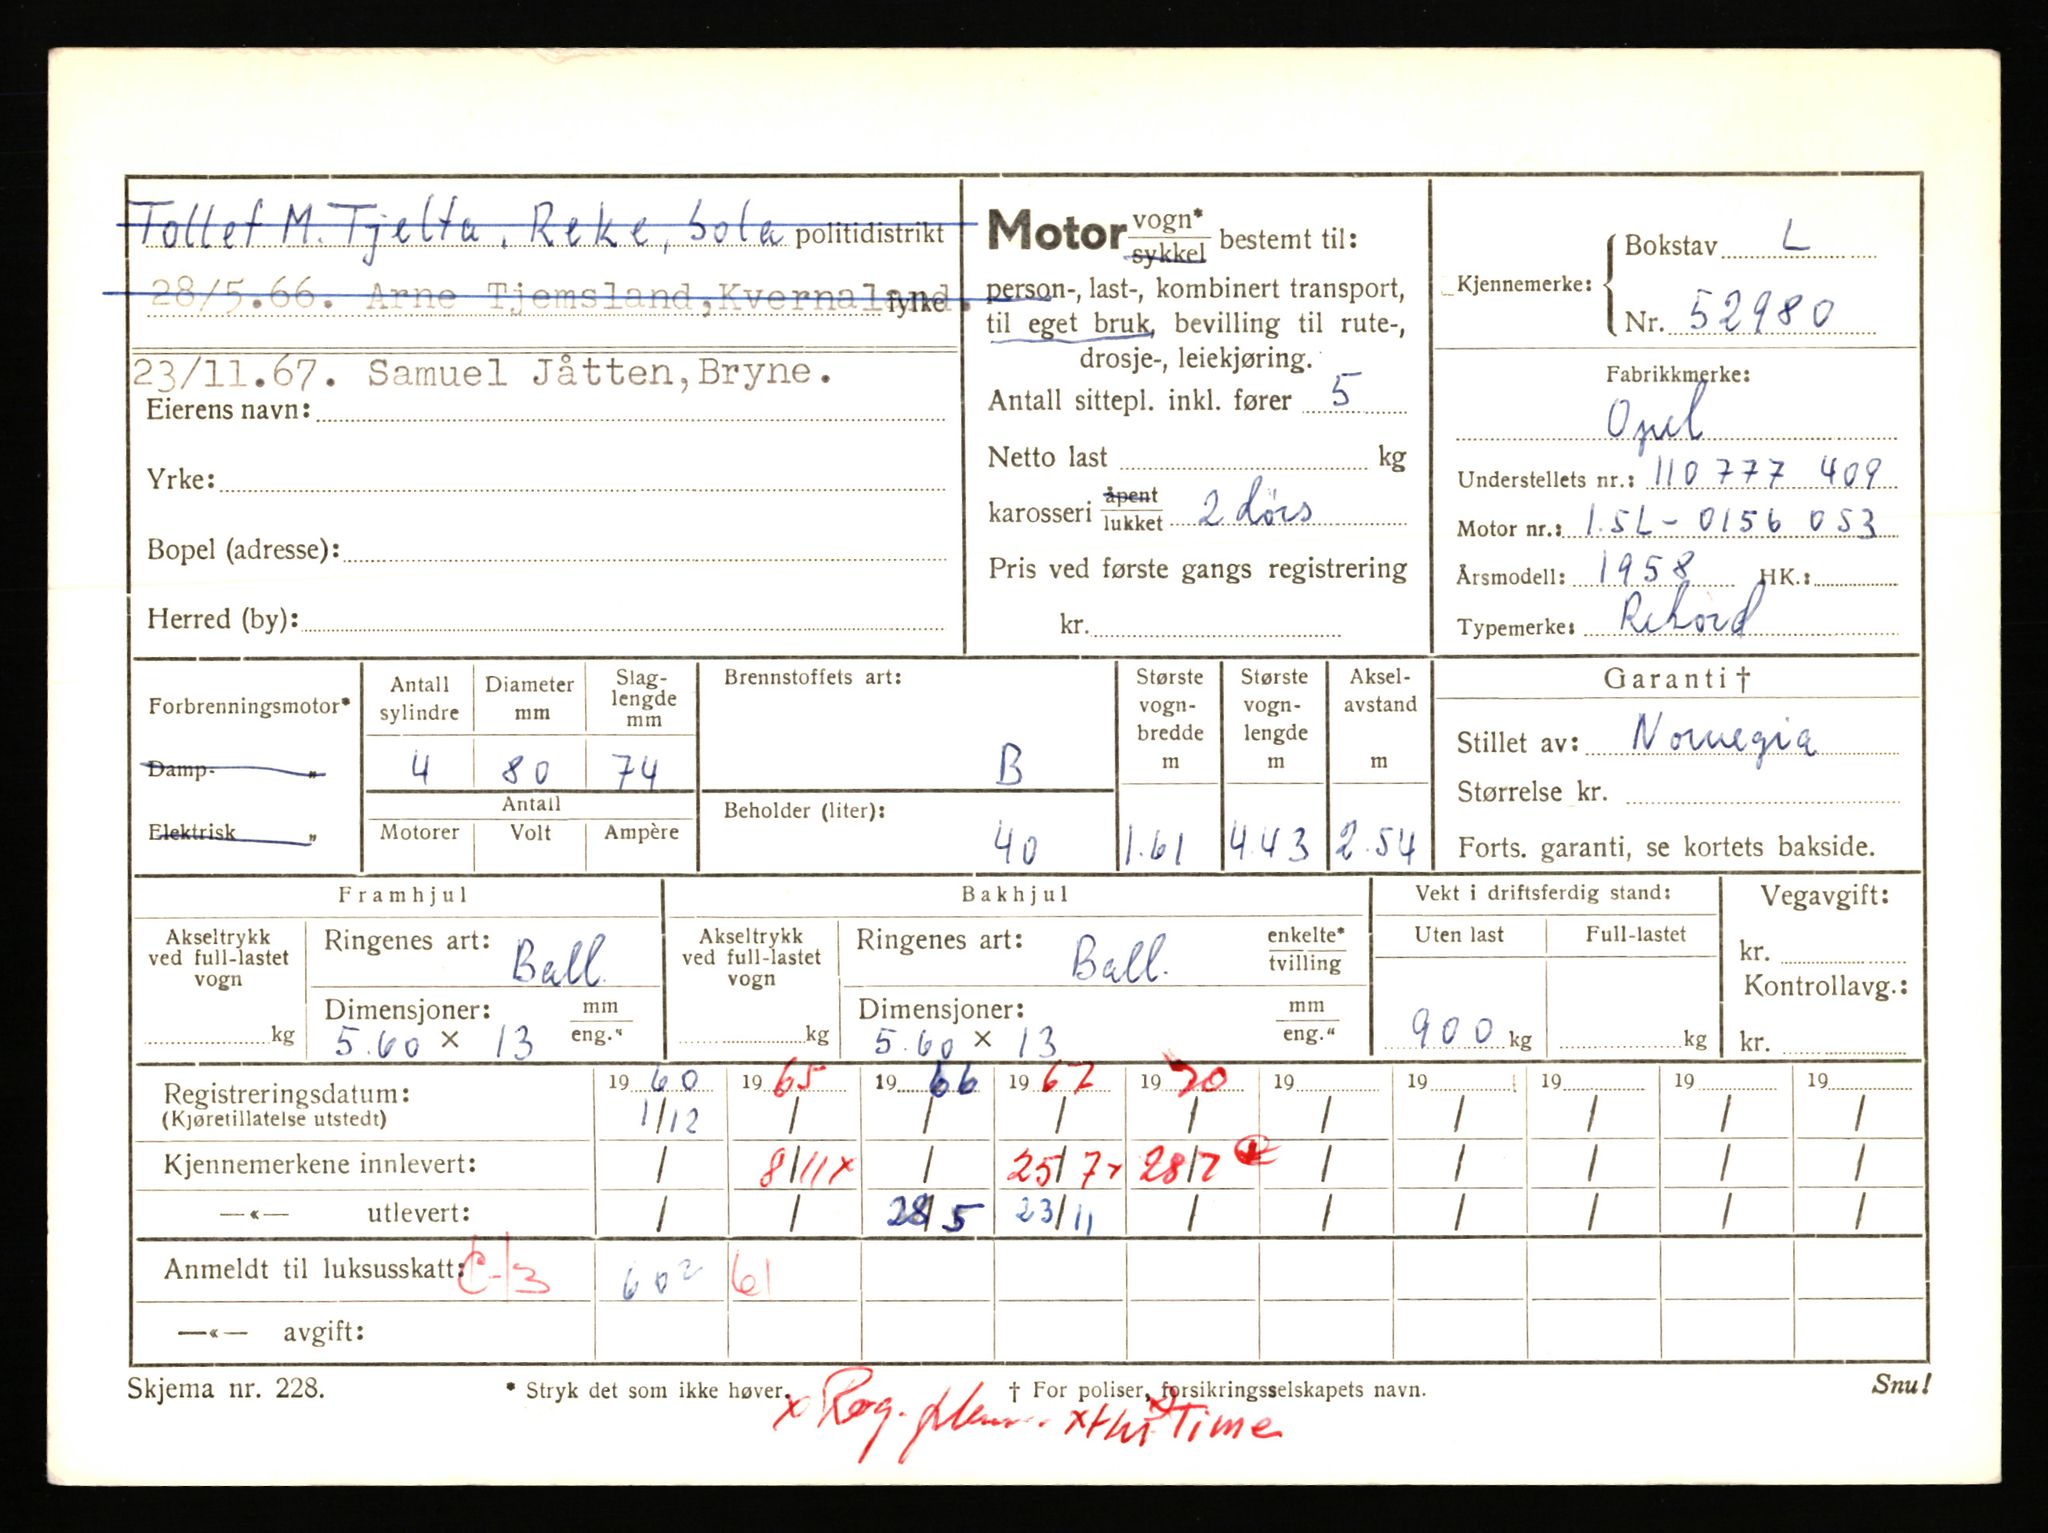 Tollef M. Tjelta, Reke, Sola politidistrikt
28/5.66. Arne Tjemsland, Kvernaland. fylke
23/11.67. Samuel Jåtten, Bryne.
Eierens navn:
Yrke:
Bopel (adresse):
Herred (by):
Motor vogn* sykkel bestemt til:
person-, last-, kombinert transport,
til eget bruk, bevilling til rute-,
drosje-, leiekjøring.
Antall sittepl. inkl. fører 5
Netto last kg
karosseri åpent lukket 2 dørs
Pris ved første gangs registrering
kr.
Kjennemerke: Bokstav L
Nr. 52980
Fabrikkmerke:
Opel
Understellets nr.: 110777 409
Motor nr.: 1.5L-0156 053
Årsmodell: 1958 HK.:
Typemerke: Rekord
Forbrenningsmotor*
Damp- „
Elektrisk „
Antall sylindre 4
Diameter mm 80
Slag- lengde mm 74
Antall
Motorer Volt Ampère
Brennstoffets art:
B
Beholder (liter):
40
Største vogn- bredde m 1.61
Største vogn- lengde m 4.43
Aksel- avstand m 2.54
Garanti †
Stillet av: Norvegia
Størrelse kr.
Forts. garanti, se kortets bakside.
Framhjul
Akseltrykk ved full-lastet vogn kg
Ringenes art: Ball.
Dimensjoner: mm eng."
5.60 × 13
Bakhjul
Akseltrykk ved full-lastet vogn kg
Ringenes art: Ball. enkelte* tvilling
Dimensjoner: mm eng."
5.60 × 13
Vekt i driftsferdig stand:
Uten last Full-lastet
900 kg kg
Vegavgift:
kr.
Kontrollavg.:
kr.
Registreringsdatum: 19 60 19 65 19 66 19 67 19 70 19 19 19 19 19
(Kjøretillatelse utstedt) 1/12 / / / / / / / / /
Kjennemerkene innlevert: / 8/11 x / 25/7 x 28/7 / / / / /
—«— utlevert: / / 28/5 23/11 / / / / / /
Anmeldt til luksusskatt: C-13 60² 61
—«— avgift:
Skjema nr. 228. * Stryk det som ikke høver. † For poliser, forsikringsselskapets navn. Snu!
x Rog. Time